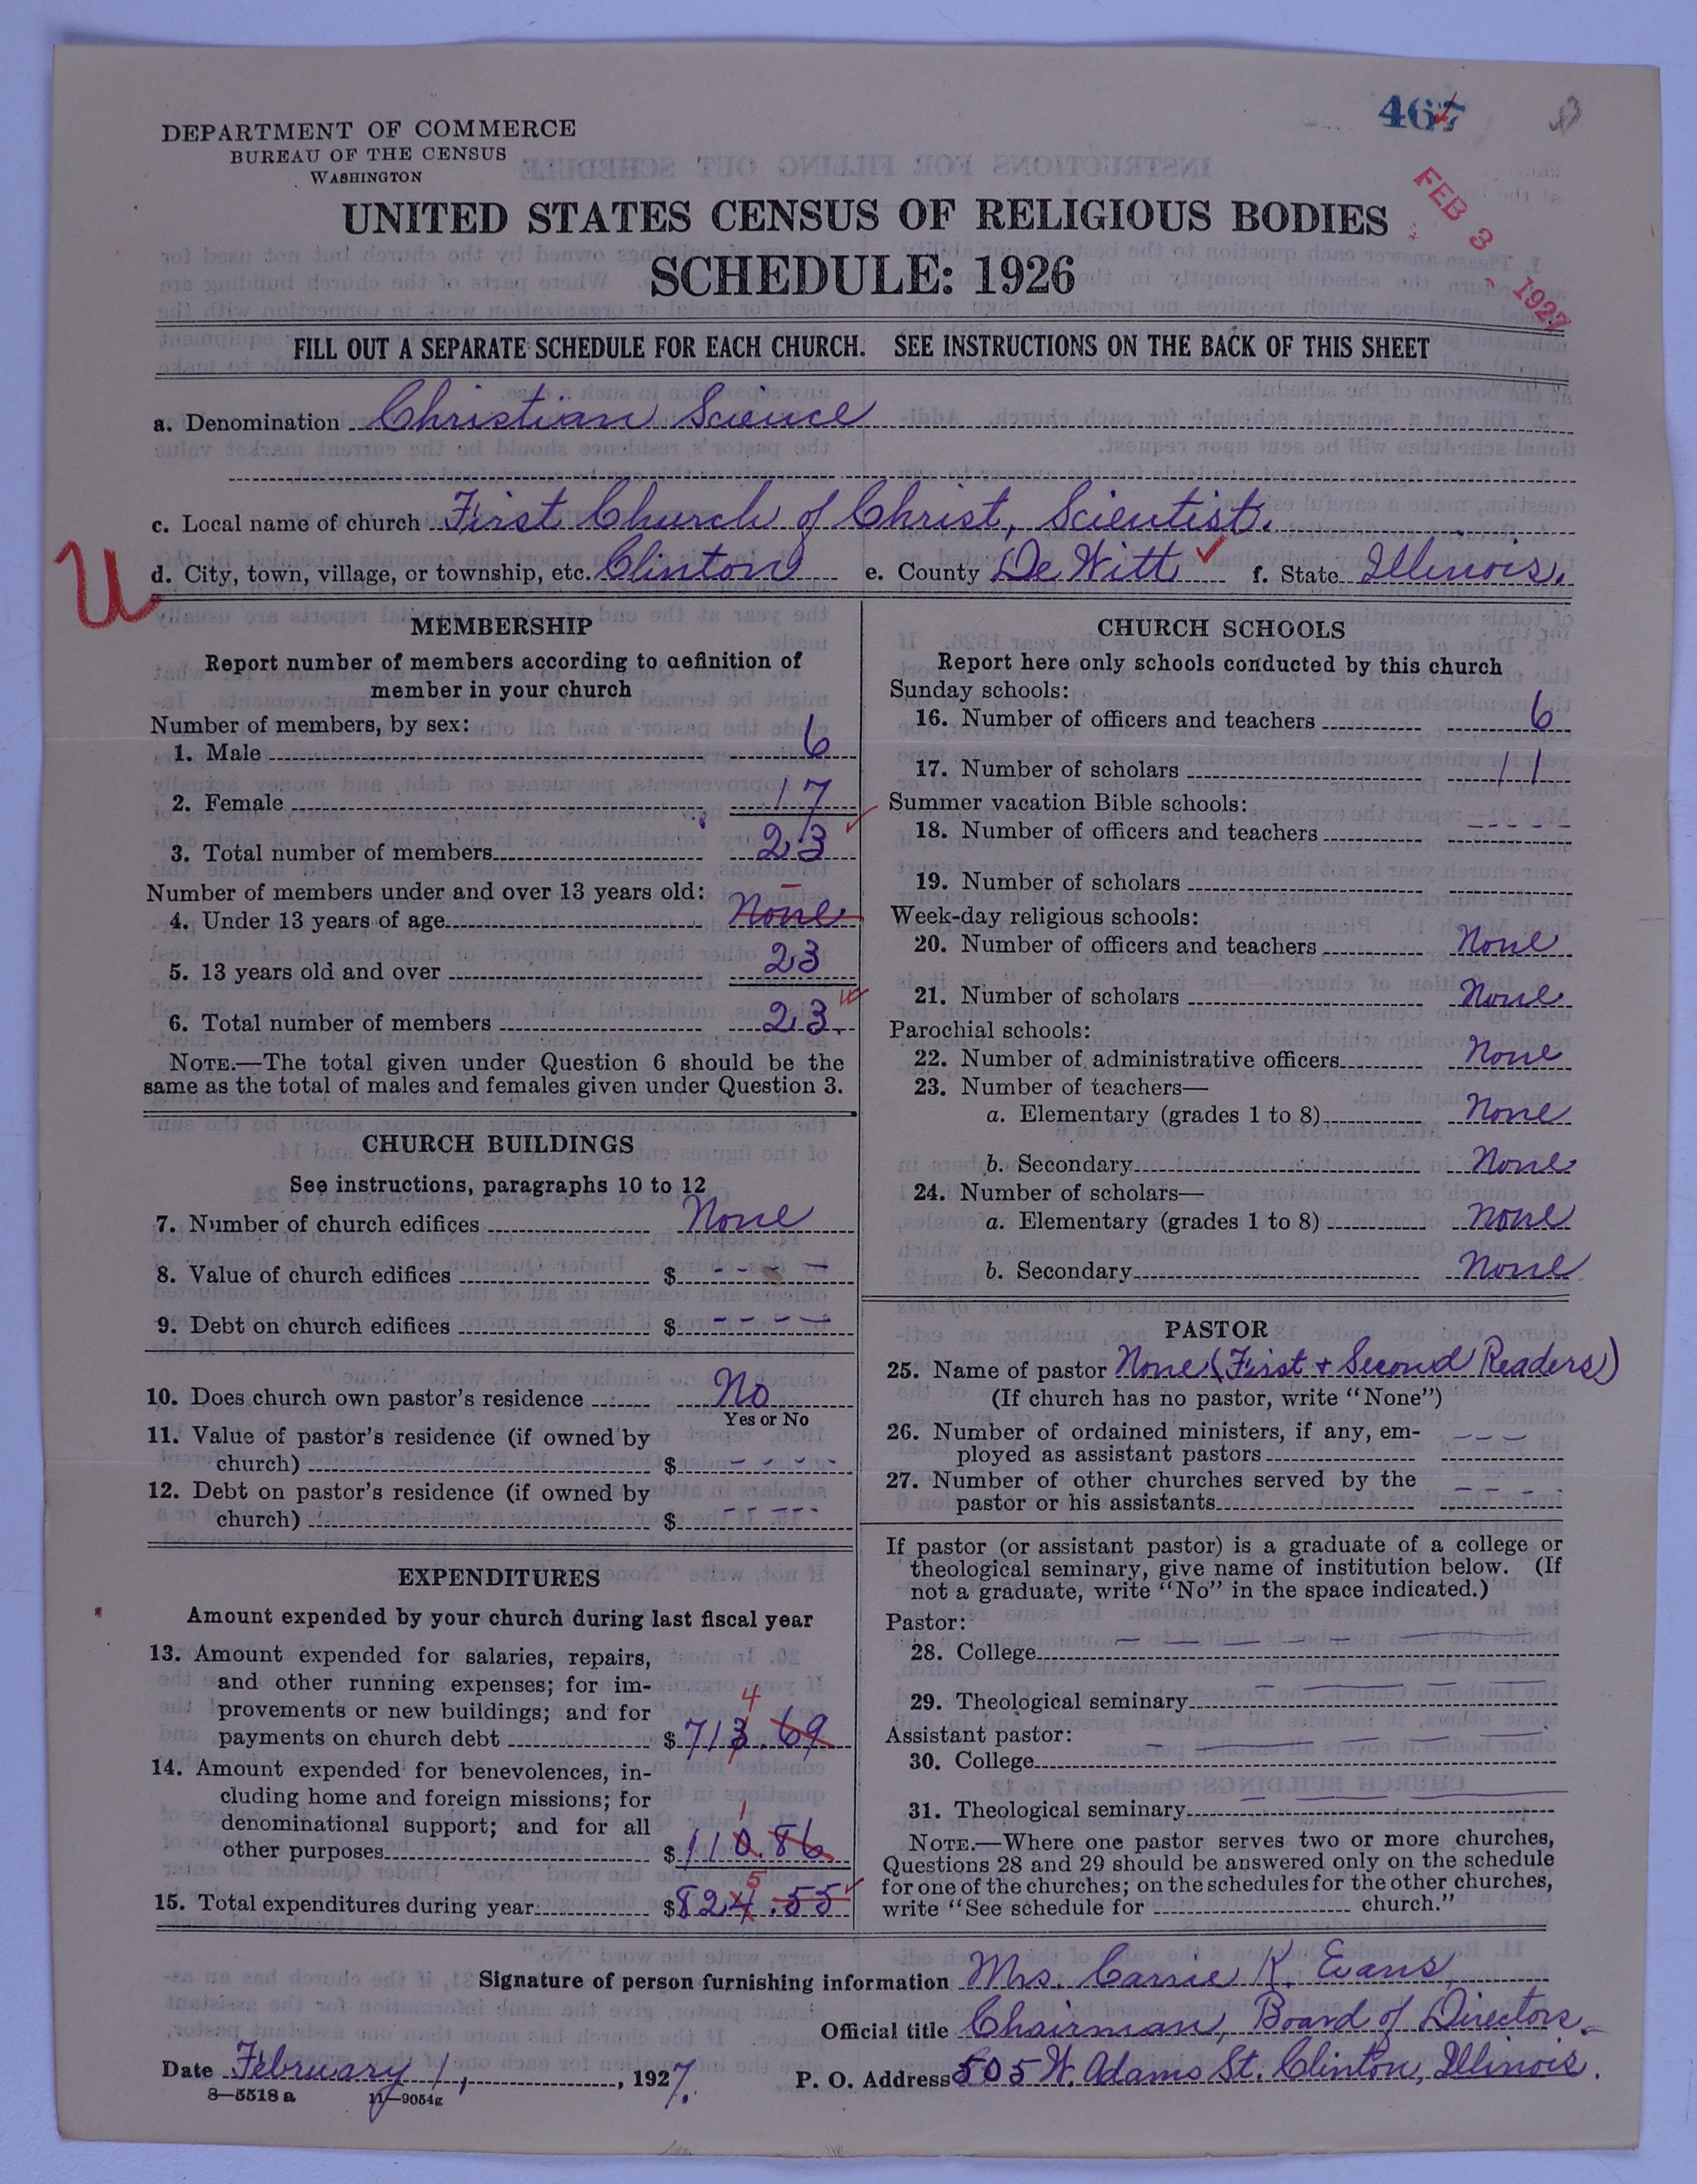 467
DEPARTMENT OF COMMERCE
BUREAU OF THE CENSUS
WASHINGTON
FEB 3 - 1927
UNITED STATES CENSUS OF RELIGIOUS BODIES
SCHEDULE: 1926
FILL OUT A SEPARATE SCHEDULE FOR EACH CHURCH. SEE INSTRUCTIONS ON THE BACK OF THIS SHEET
a. Denomination Christian Science
c. Local name of church First Church of Christ, Scientist.
U
d. City, town, village, or township, etc. Clinton e. County De Witt ✓ f. State Illinois.
MEMBERSHIP
Report number of members according to definition of
member in your church
Number of members, by sex:
1. Male 6
2. Female 17
3. Total number of members 23
Number of members under and over 13 years old:
4. Under 13 years of age None
5. 13 years old and over 23
6. Total number of members 23
NOTE.—The total given under Question 6 should be the
same as the total of males and females given under Question 3.
CHURCH BUILDINGS
See instructions, paragraphs 10 to 12
7. Number of church edifices None
8. Value of church edifices $ - - - -
9. Debt on church edifices $ - - - -
10. Does church own pastor's residence No
Yes or No
11. Value of pastor's residence (if owned by
church) $ - - - -
12. Debt on pastor's residence (if owned by
church) $ - - - -
EXPENDITURES
Amount expended by your church during last fiscal year
13. Amount expended for salaries, repairs,
and other running expenses; for im-
provements or new buildings; and for
4
payments on church debt $713.69
14. Amount expended for benevolences, in-
cluding home and foreign missions; for
denominational support; and for all
1
other purposes $110.86
5
15. Total expenditures during year $824.55
CHURCH SCHOOLS
Report here only schools conducted by this church
Sunday schools:
16. Number of officers and teachers 6
17. Number of scholars 11
Summer vacation Bible schools:
18. Number of officers and teachers - - - -
19. Number of scholars
Week-day religious schools:
20. Number of officers and teachers None
21. Number of scholars None
Parochial schools:
22. Number of administrative officers None
23. Number of teachers—
a. Elementary (grades 1 to 8) None
b. Secondary None
24. Number of scholars—
a. Elementary (grades 1 to 8) None
b. Secondary None
PASTOR
25. Name of pastor None (First + Second Readers)
(If church has no pastor, write "None")
26. Number of ordained ministers, if any, em-
ployed as assistant pastors - - -
27. Number of other churches served by the
pastor or his assistants - - - -
If pastor (or assistant pastor) is a graduate of a college or
theological seminary, give name of institution below. (If
not a graduate, write "No" in the space indicated.)
Pastor:
28. College
29. Theological seminary
Assistant pastor:
30. College
31. Theological seminary
NOTE.—Where one pastor serves two or more churches,
Questions 28 and 29 should be answered only on the schedule
for one of the churches; on the schedules for the other churches,
write "See schedule for church."
Signature of person furnishing information Mrs. Carrie K. Evans,
Official title Chairman, Board of Directors.
Date February 1, , 1927. P. O. Address 505 W. Adams St. Clinton, Illinois.
8—5518 a 11—9054g